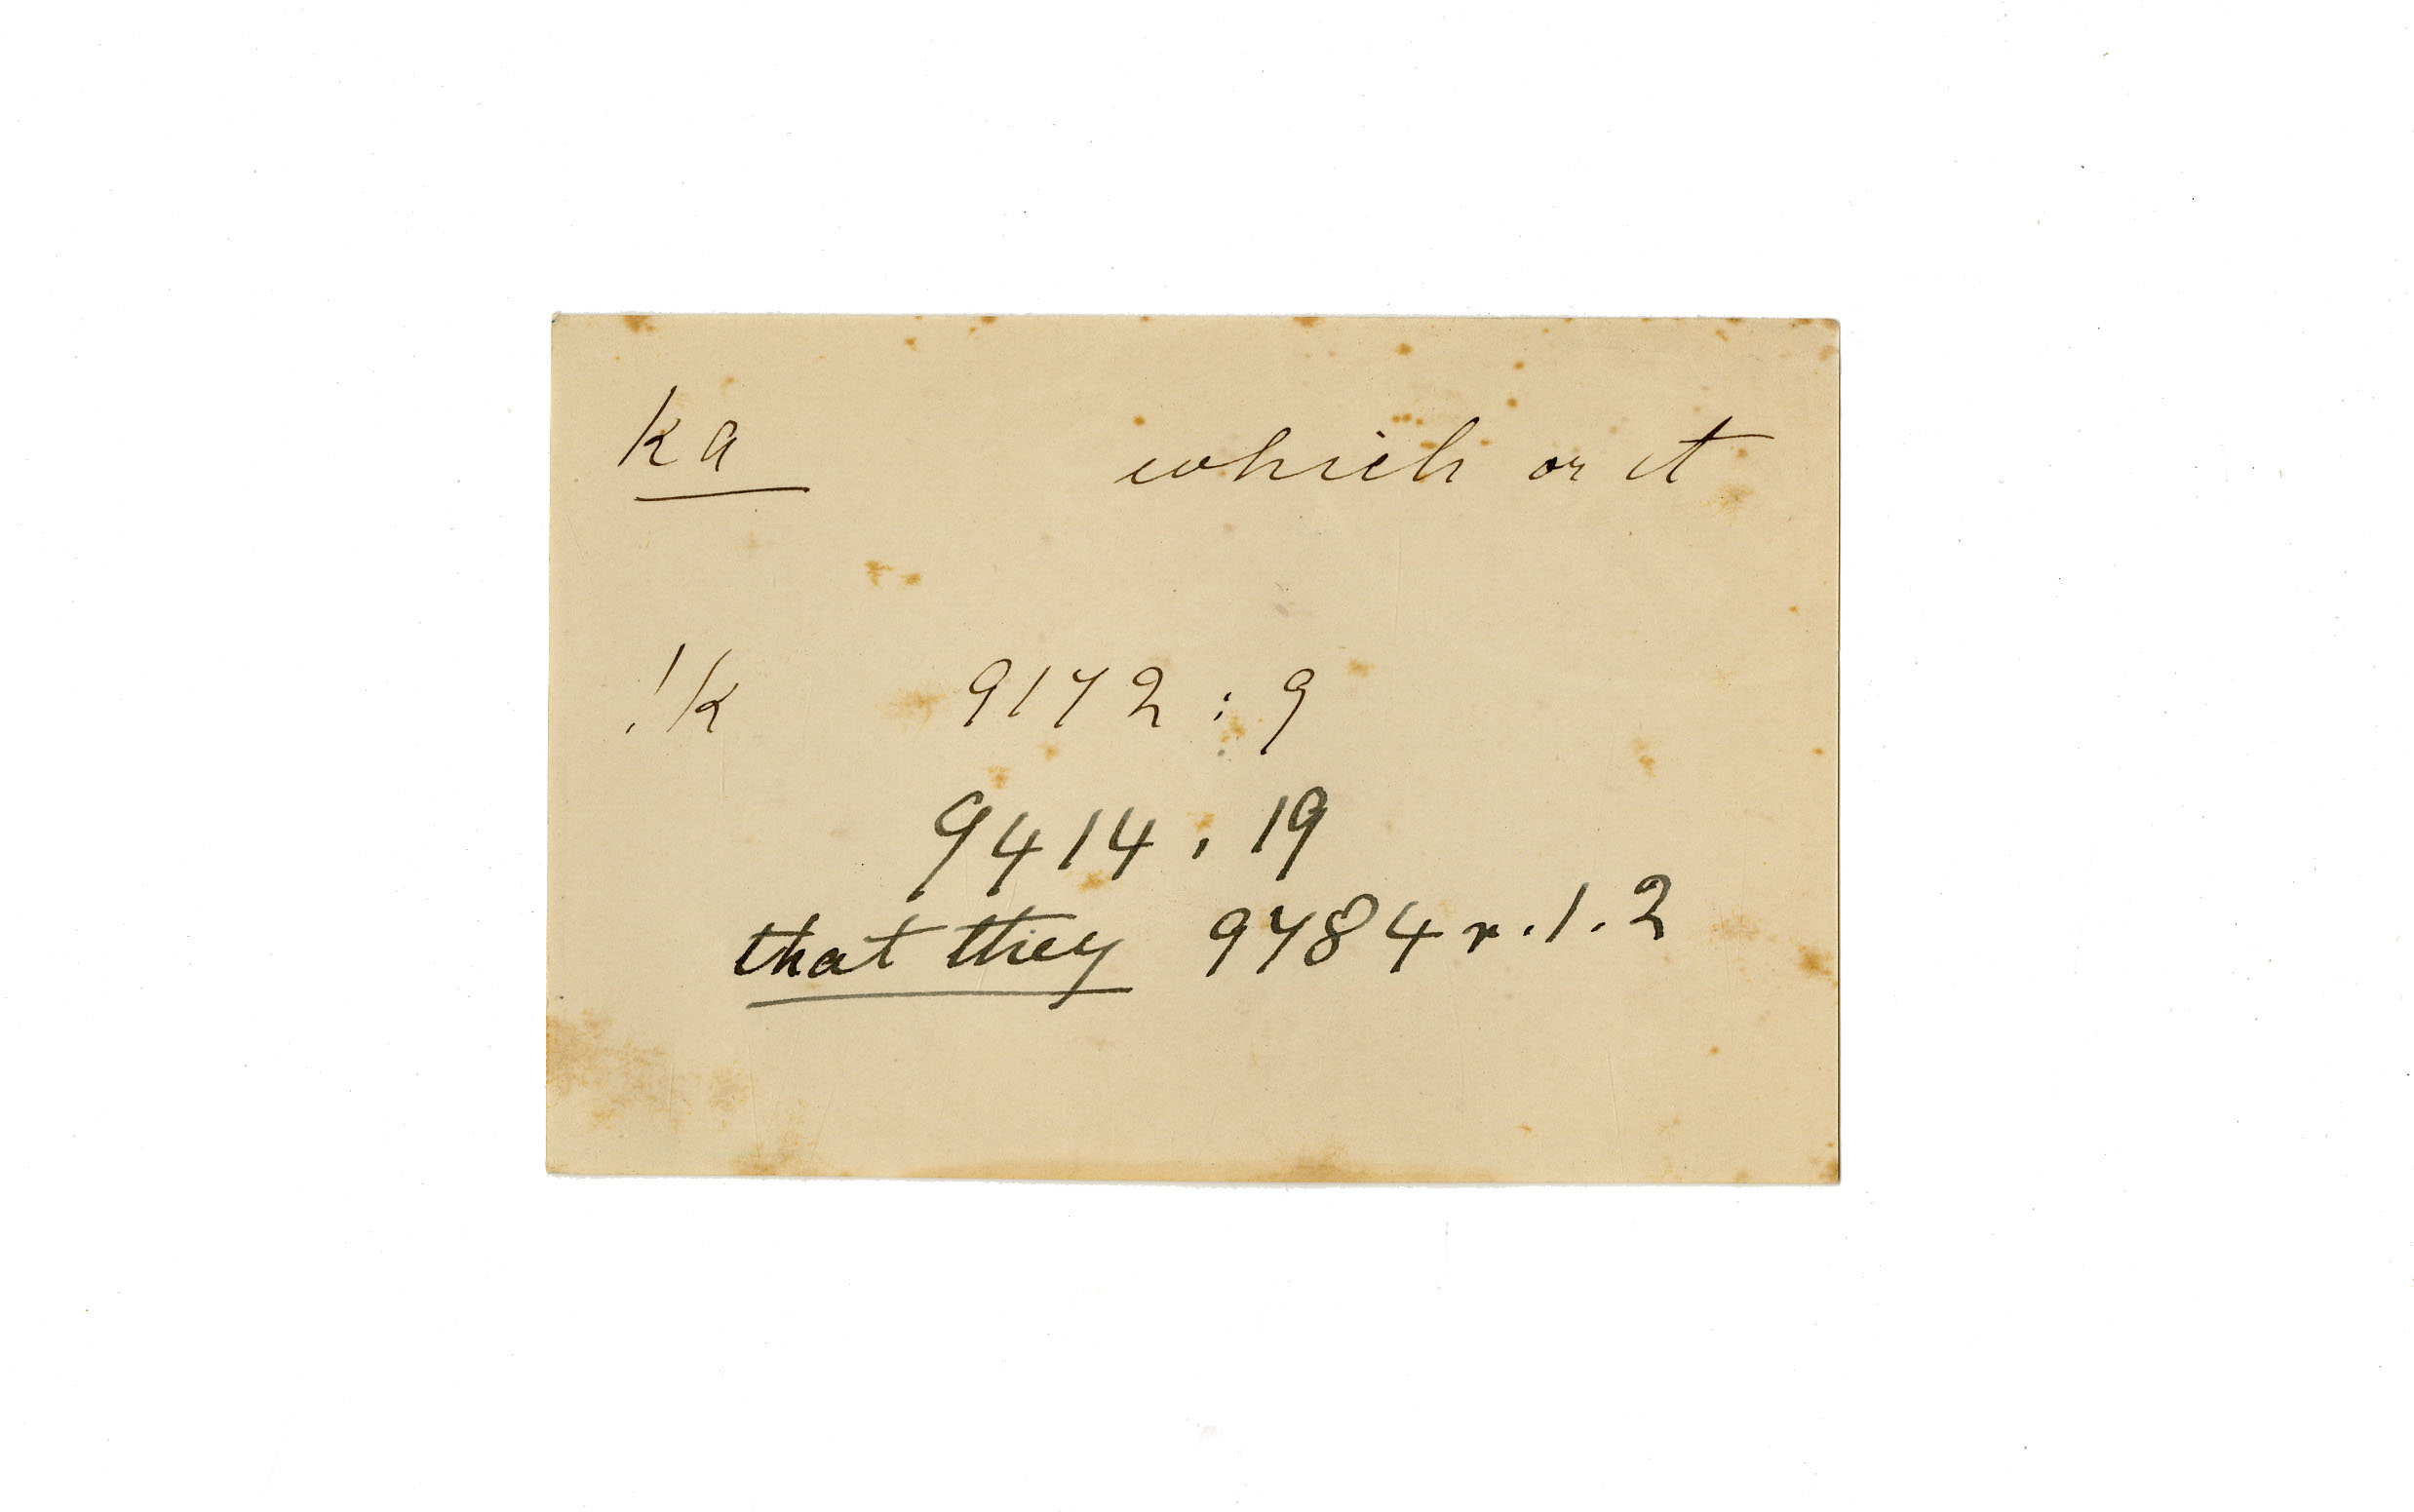 ka which or it
!k 9172 : 9
9414 . 19
that they 9784 r. 1. 2